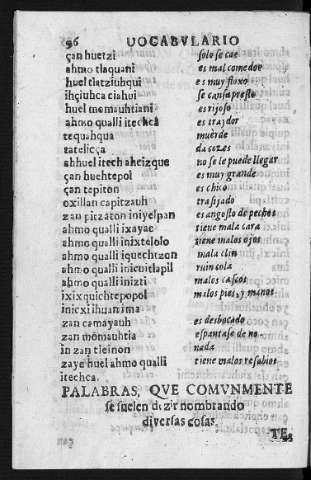 96 VOCABVLARIO
çan huetzi solo se cae
ahmo tlaquani es mal comedor
huel tlatziuhqui es muy floxo
ihçiuhca ciahui se cansa presto
huel momauhtiani es rijoso
ahmo qualli itechca es traydor
tequahqua muerde
tatelicça da cozes
ahhuel itech ahcizque no se le puede llegar
çan huehtepol es muy grande
çan tepiton es chico
oxillan capitzauh trasijado
zan pitzaton iniyelpan es angosto de pechos
ahmo qualli ixayac tiene mala cara
ahmo qualli inixtelolo tiene malos ojos
ahmo qualli iquechtzon mala clin
ahmo qualli inicuitlapil ruin cola
ahmo qualli inizti malos cascos
ixixquichtepopol malos pies, y manos
inicxi ihuan ima
zan camayauh es desbocado
zan momauhtia espantase de no-
in zan tleinon nada
zaye huel ahmo qualli tiene malos resabios
itechca.
PALABRAS, QVE COMVNMENTE
se suelen dezir nombrando
diversas cosas.